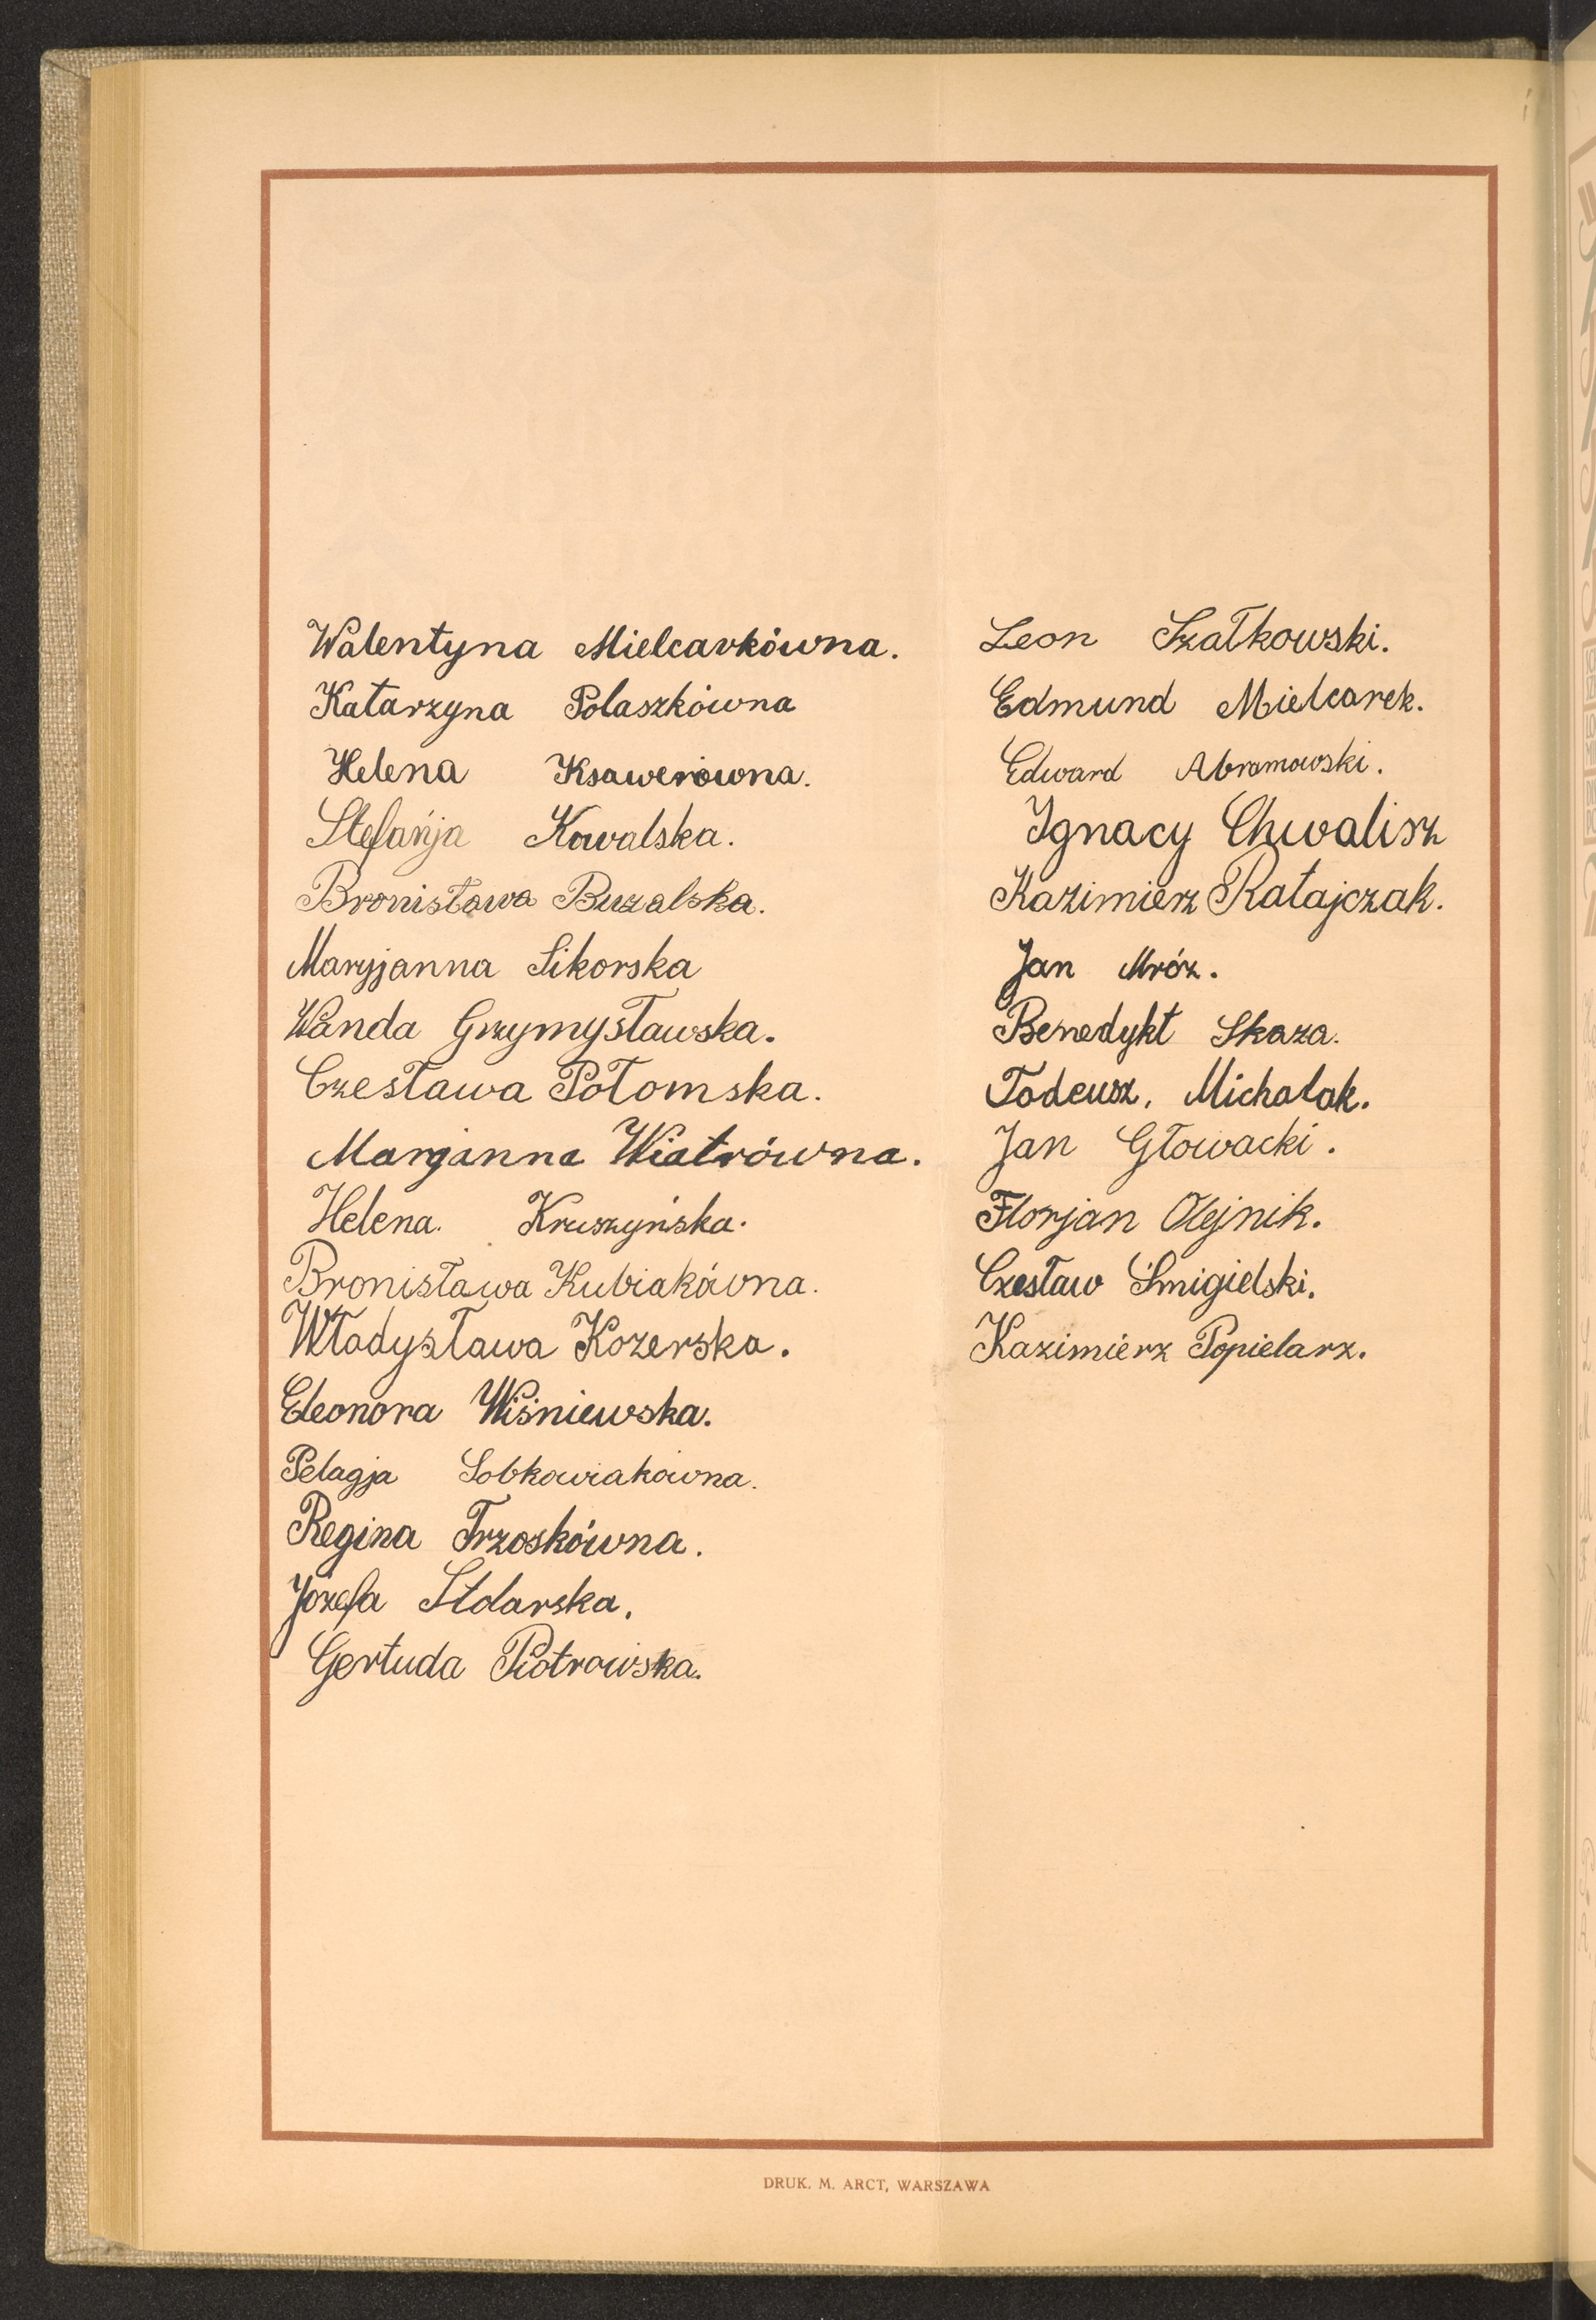 Walentyna Mielcarkówna.
Katarzyna Polaszkówna
Helena Ksawerówna.
Stefańja Kowalska.
Bronisława Buzalska.
Maryjanna Sikorska
Wanda Grzymysławska.
Czesława Połomska.
Marjanna Wiatrówna.
Helena. Kruszyńska.
Bronisława Kubiakówna.
Władysława Kozerska.
Eleonora Wiśniewska.
Pelagja Sobkowiakówna.
Regina Trzoskówna.
Józefa Stolarska.
Gertuda Piotrowska.
Leon Szałkowski.
Edmund Mielcarek.
Edward Abramowski.
Ignacy Chwalisz
Kazimierz Ratajczak.
Jan Mróz.
Benedykt Skaza.
Tadeusz. Michalak.
Jan Głowacki.
Florjan Olejnik.
Czesław Śmigielski.
Kazimierz Popielarz.
DRUK. M. ARCT, WARSZAWA